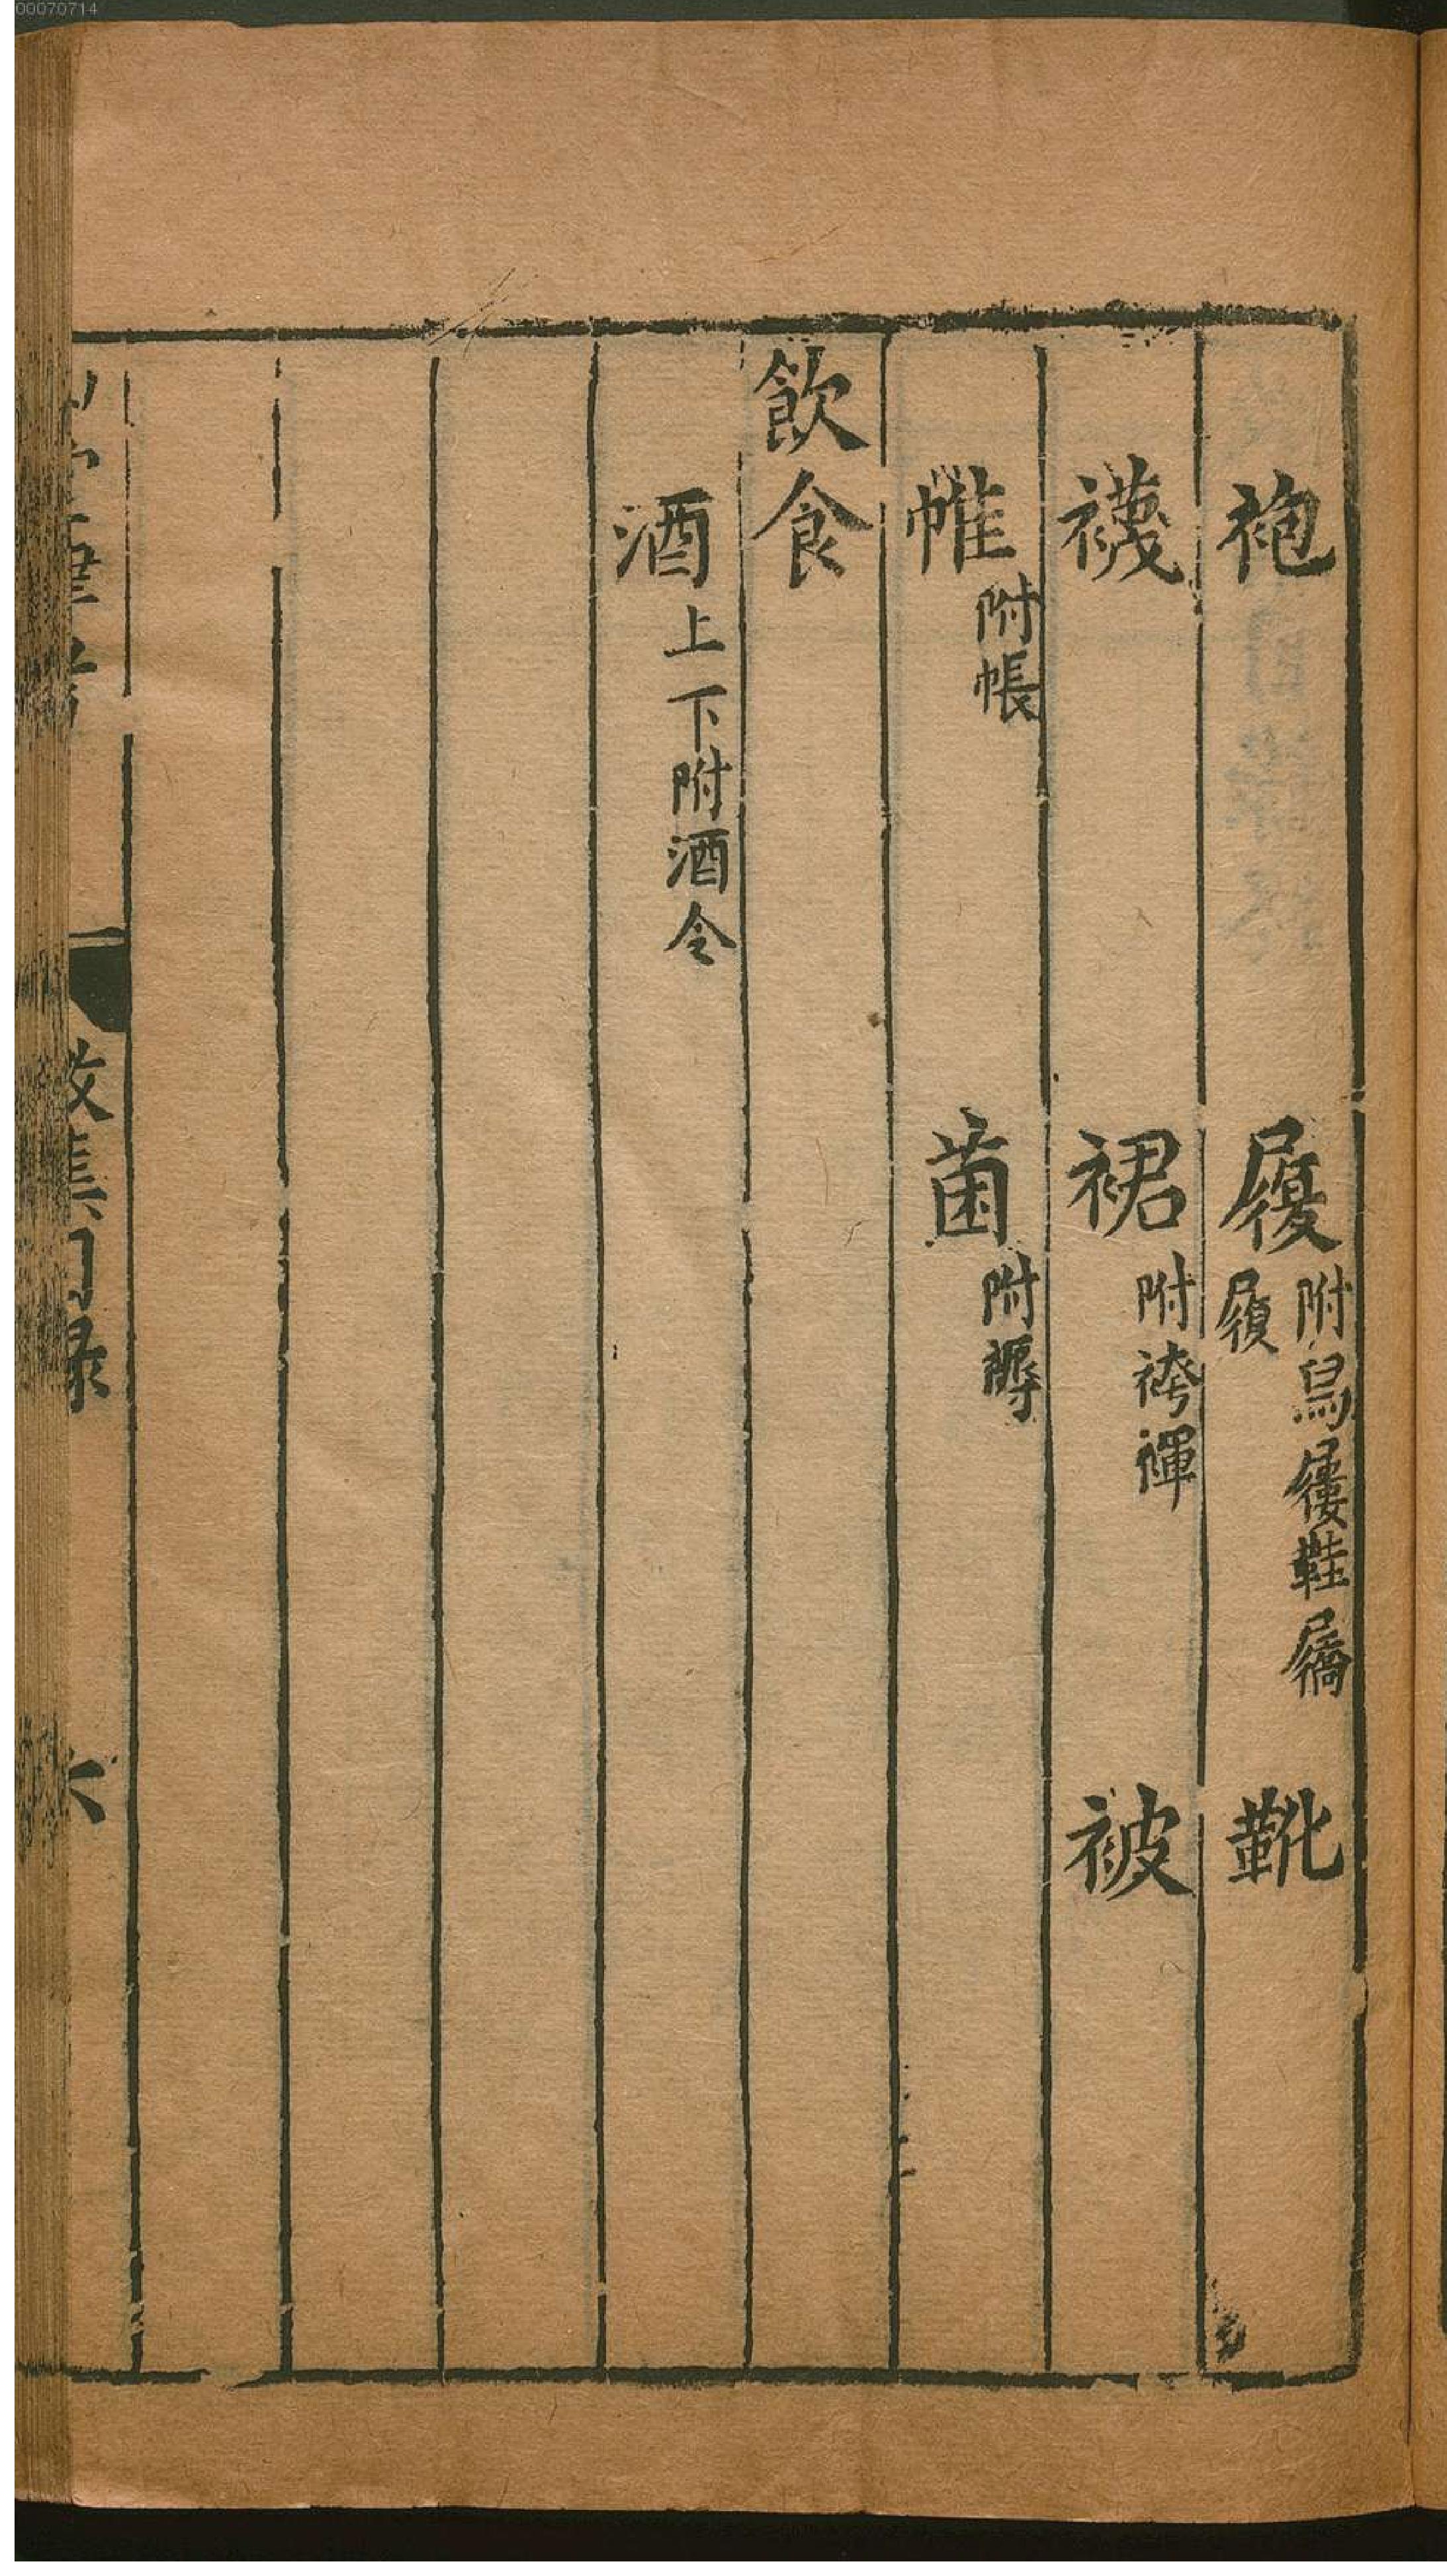 00070714
袍 履附舄屨鞋屩屐 靴
襪 裙附袴褌 被
帷附帳 茵附褥
飲食
酒上下附酒令
山堂肆考 徵集目錄 六